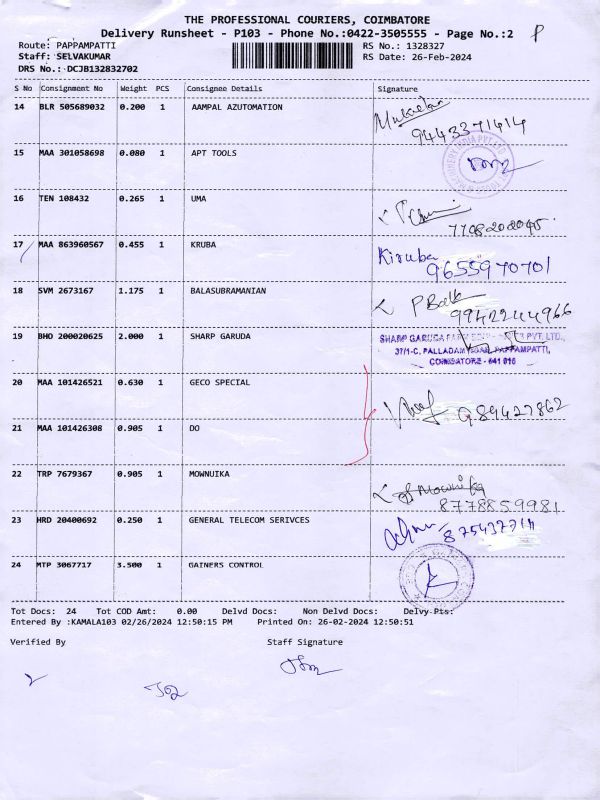 THE PROFESSIONAL COURIERS, COIMBATORE
Delivery Runsheet - P103 - Phone No.:0422-3505555 - Page No.:2 P
Route: PAPPAMPATTI RS No.: 1328327
Staff: SELVAKUMAR RS Date: 26-Feb-2024
DRS No.: DCJB132832702
S No Consignment No Weight PCS Consignee Details Signature
14 BLR 505689032 0.200 1 AAMPAL AZUTOMATION
9443371414
15 MAA 301058698 0.080 1 APT TOOLS
16 TEN 108432 0.265 1 UMA
7708202045
17 MAA 863960567 0.455 1 KRUBA Kiruba
9655970701
18 SVM 2673167 1.175 1 BALASUBRAMANIAN
9942244966
19 BHO 200020625 2.000 1 SHARP GARUDA SHARP GARUDA PVT. LTD.,
37/1-C, PALLADAM ROAD, PAPPAMPATTI,
COIMBATORE - 641 016
20 MAA 101426521 0.630 1 GECO SPECIAL
989427862
21 MAA 101426308 0.905 1 DO
22 TRP 7679367 0.905 1 MOWNUIKA Mownika
8778859981
23 HRD 20400692 0.250 1 GENERAL TELECOM SERIVCES
24 MTP 3067717 3.500 1 GAINERS CONTROL
Tot Docs: 24 Tot COD Amt: 0.00 Delvd Docs: Non Delvd Docs: Delvy-Pts:
Entered By :KAMALA103 02/26/2024 12:50:15 PM Printed On: 26-02-2024 12:50:51
Verified By Staff Signature